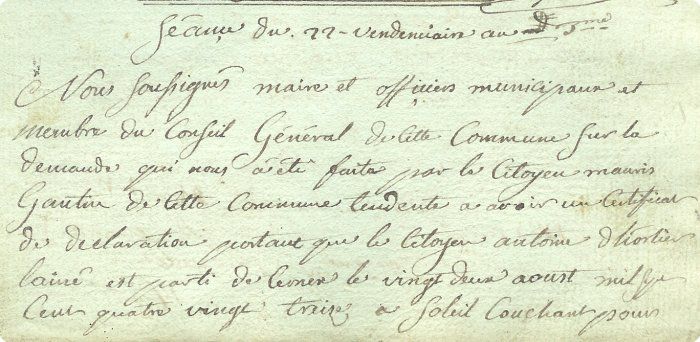 Séance du 22 vendemiaire an 3me
Nous soussignés maire et officiers municipaux et
membre du Conseil Général de cette Commune sur la
demande qui nous a été faite par le Citoyen mauris
Gautin de cette Commune tendente a avoir un Certificat
de declaration portant que le Citoyen antoine dhortier
lainé est parti de Cerner le vingt deux aoust mil sept
Cent quatre vingt treize a Soleil Couchant pour